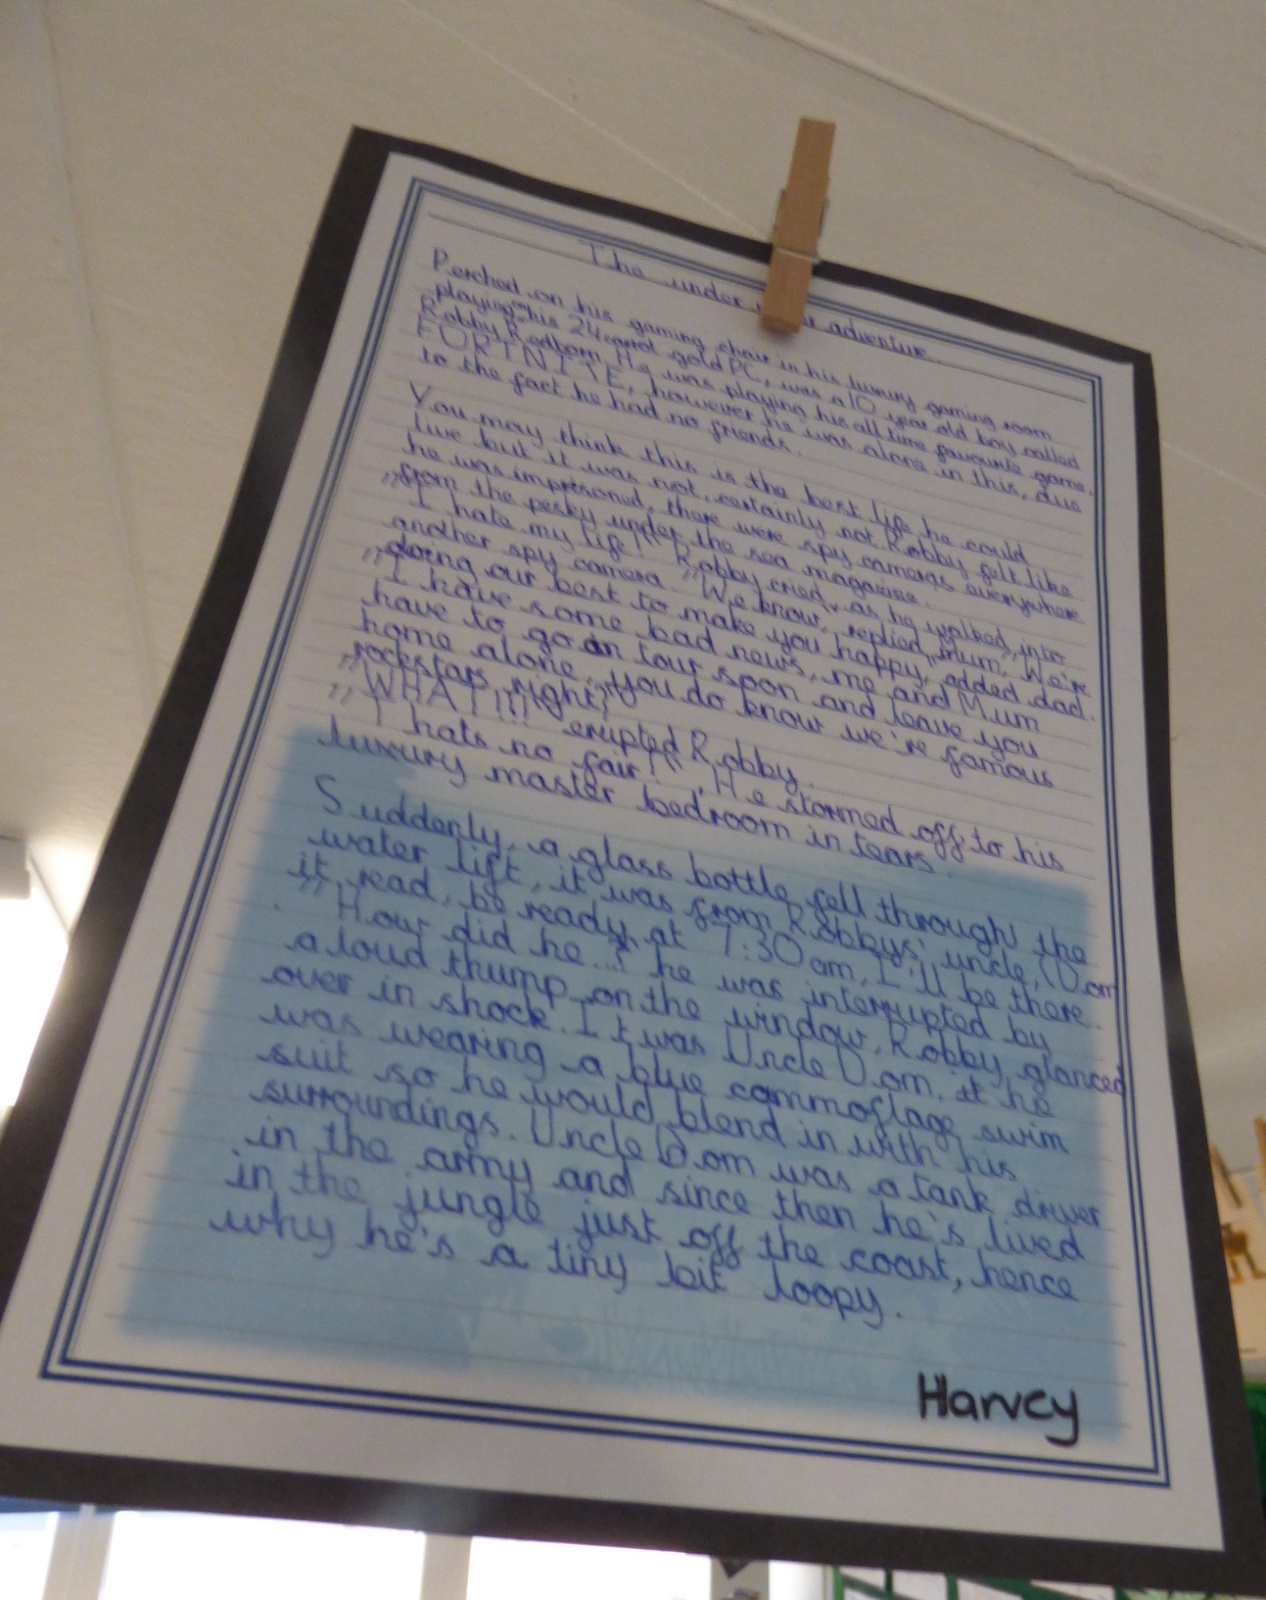 The under adventure
Perched on his gaming chair in his luxury gaming room
playing on his 24 carrot gold PC, was a 10 year old boy called
Robby Redborn. He was playing his all time favourite game,
FORTNITE, however he was alone in this, due
to the fact he had no friends.
You may think this is the best life he could
live but it was not, certainly not. Robby felt like
he was imprisoned, there were spy cameras everywhere
from the pesky under the sea magazine.
"I hate my life!" Robby cried, as he walked into
another spy camera. "We know, replied Mum, "We're
doing our best to make you happy," added dad.
"I have some bad news, me and Mum
have to go on tour soon and leave you
home alone, you do know we're famous
rockstars, right?"
"WHAT!!!!" erupted Robby.
"Thats no fair!" He stormed off to his
luxury master bedroom in tears.
Suddenly, a glass bottle fell through the
water lift, it was from Robbys' uncle, (Dom
it read, be ready at 7:30am, I'll be there.
"How did he...? he was interrupted by
a loud thump on the window. Robby glanced
over in shock. It was Uncle Dom. it he
was wearing a blue commoflage swim
suit so he would blend in with his
surroundings. Uncle Dom was a tank dryver
in the army and since then he's lived
in the jungle just off the coast, hence
why he's a tiny bit loopy.
Harvey